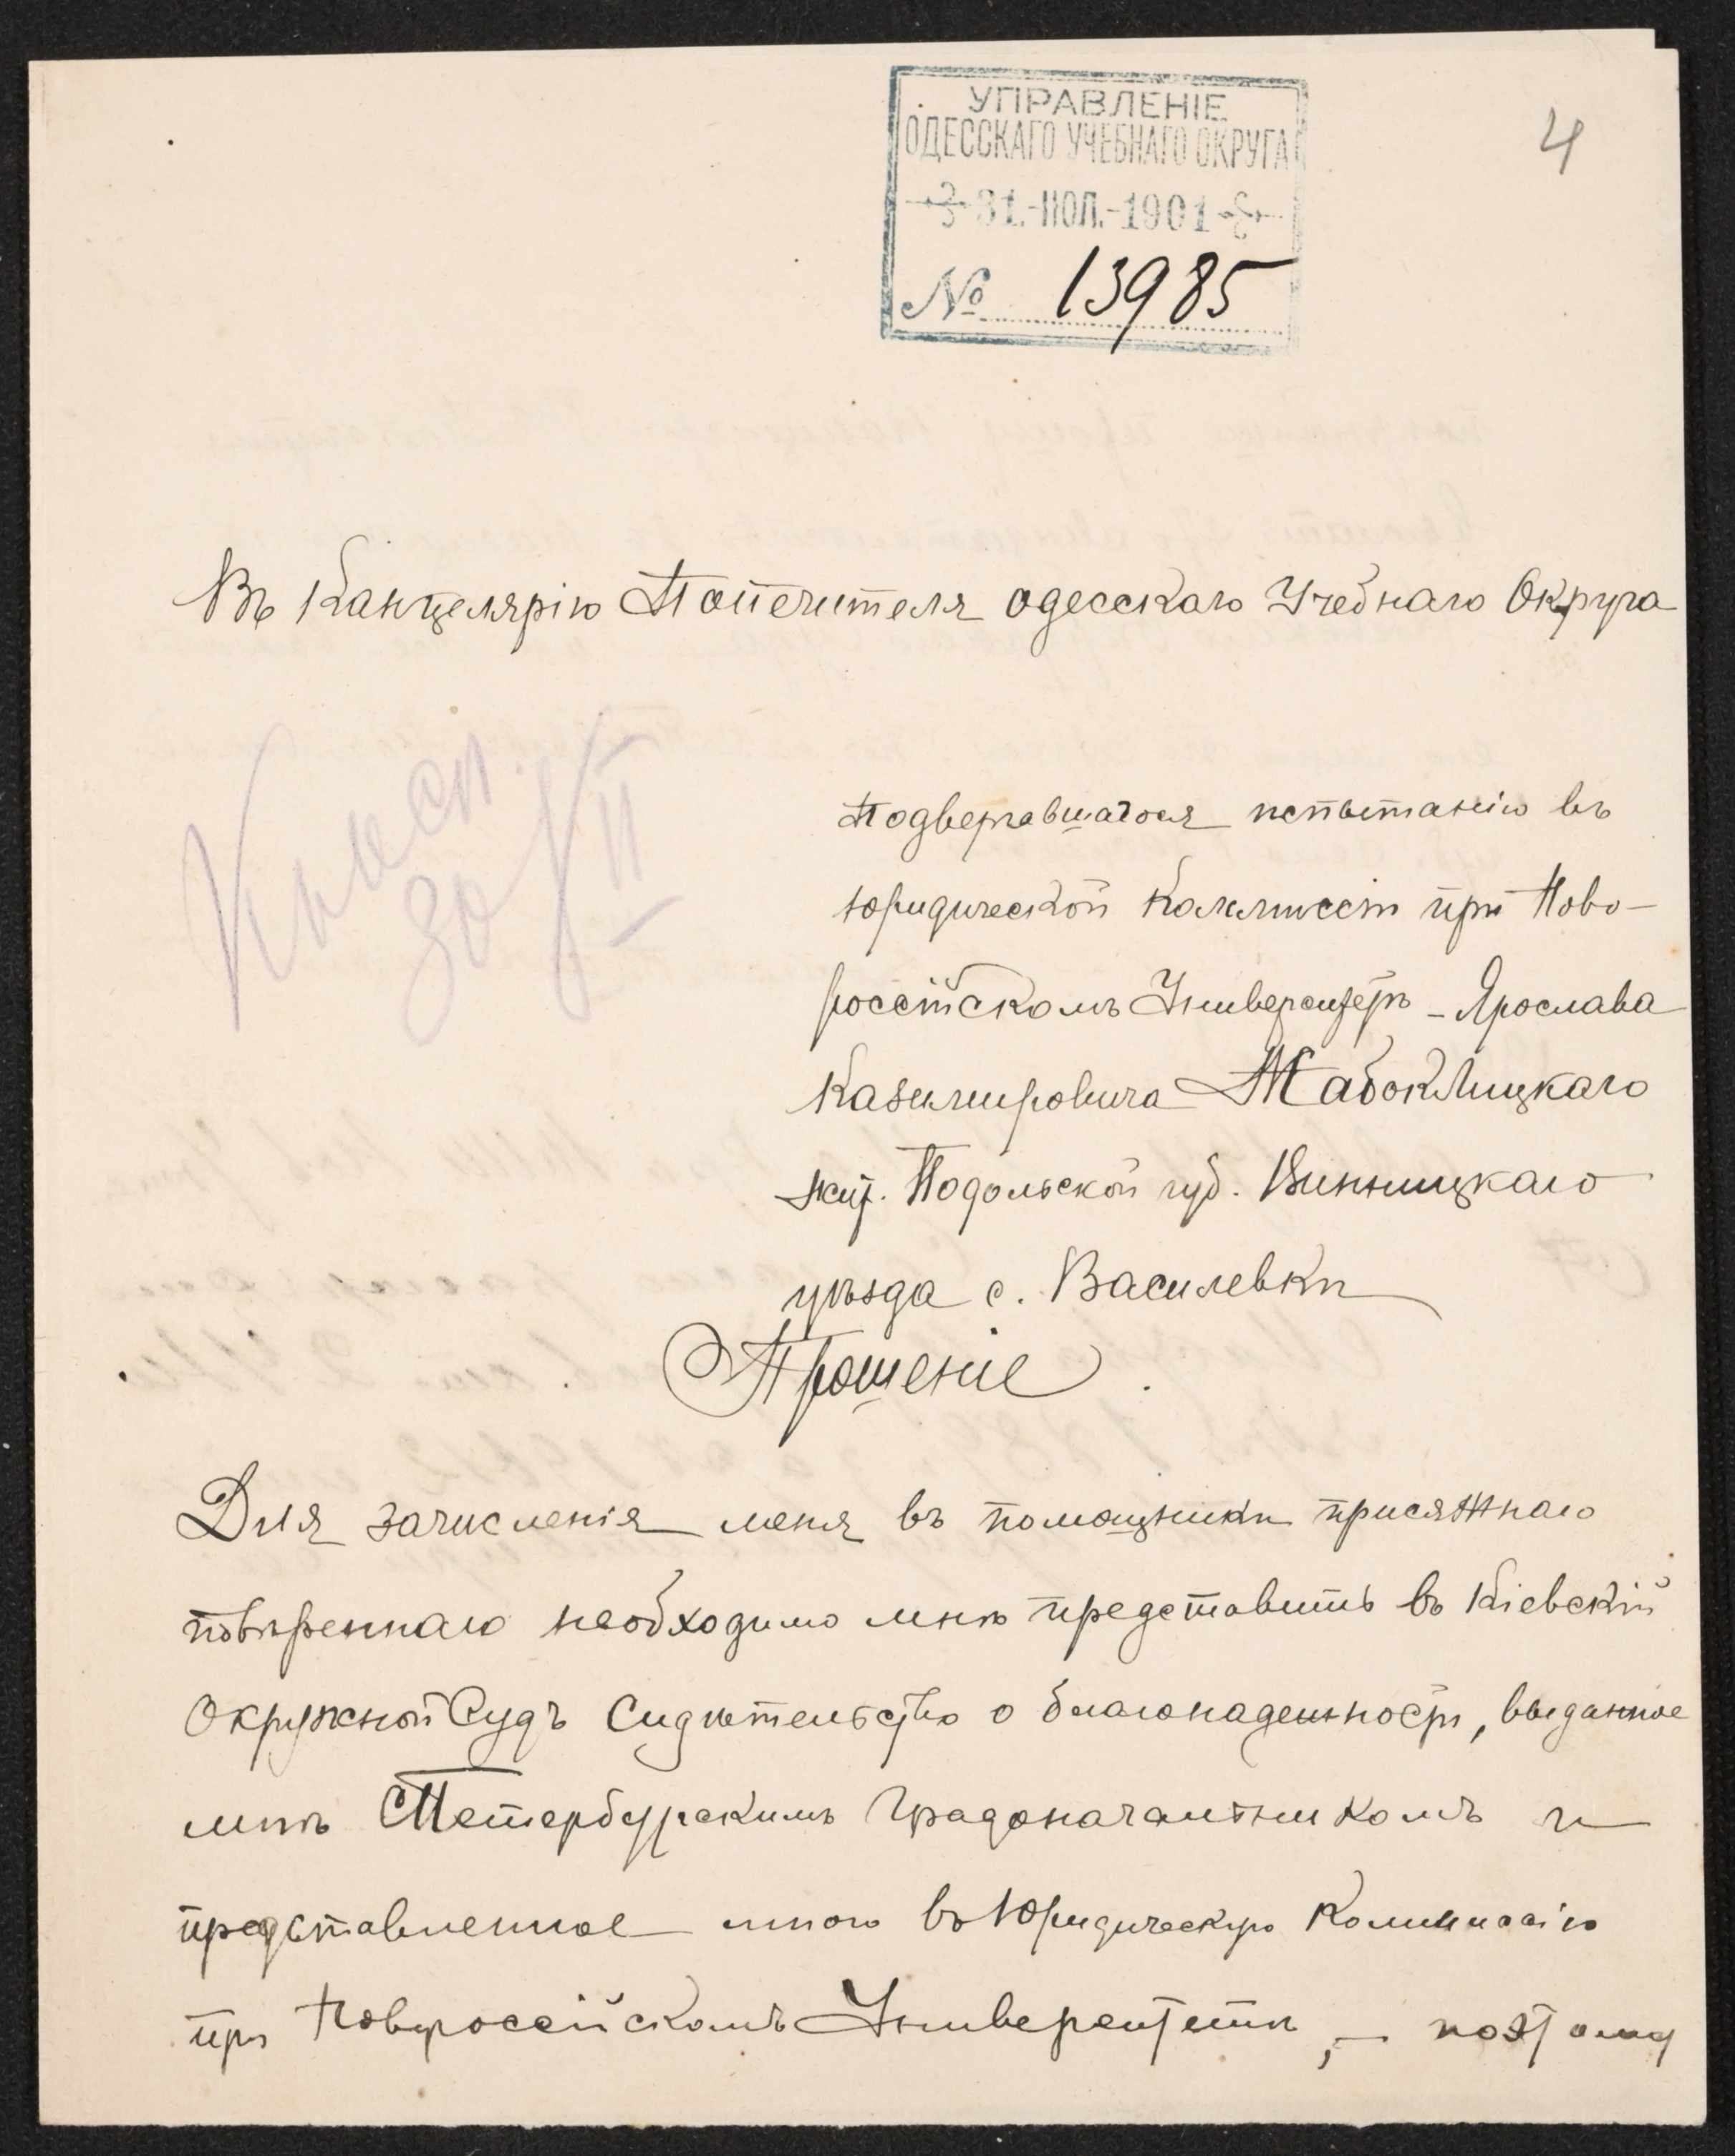 УПРАВЛЕНІЕ
ОДЕССКАГО УЧЕБНАГО ОКРУГА
31.-ІЮЛ.-1901
№ 13985
4
Въ Канцелярію Попечителя Одесскаго Учебнаго Округа
30/VII
Подвергавшагося испытанію въ
Юридической Коммиссіи при Ново-
россійскомъ Университетѣ - Ярослава
Казимировича Жабоклицкаго
жит. Подольской губ. Винницкаго
уѣзда с. Василевки
Прошеніе.
Для зачисленія меня въ помощники присяжнаго
повѣреннаго необходимо мнѣ представить въ Кіевскій
Окружной Судъ Сидѣтельство о благонадежности, выданное
мнѣ СПетербургскимъ Градоначальникомъ и
представленное мною въ Юридическую Коммиссію
при Новороссійскомъ Университетѣ, – поэтому